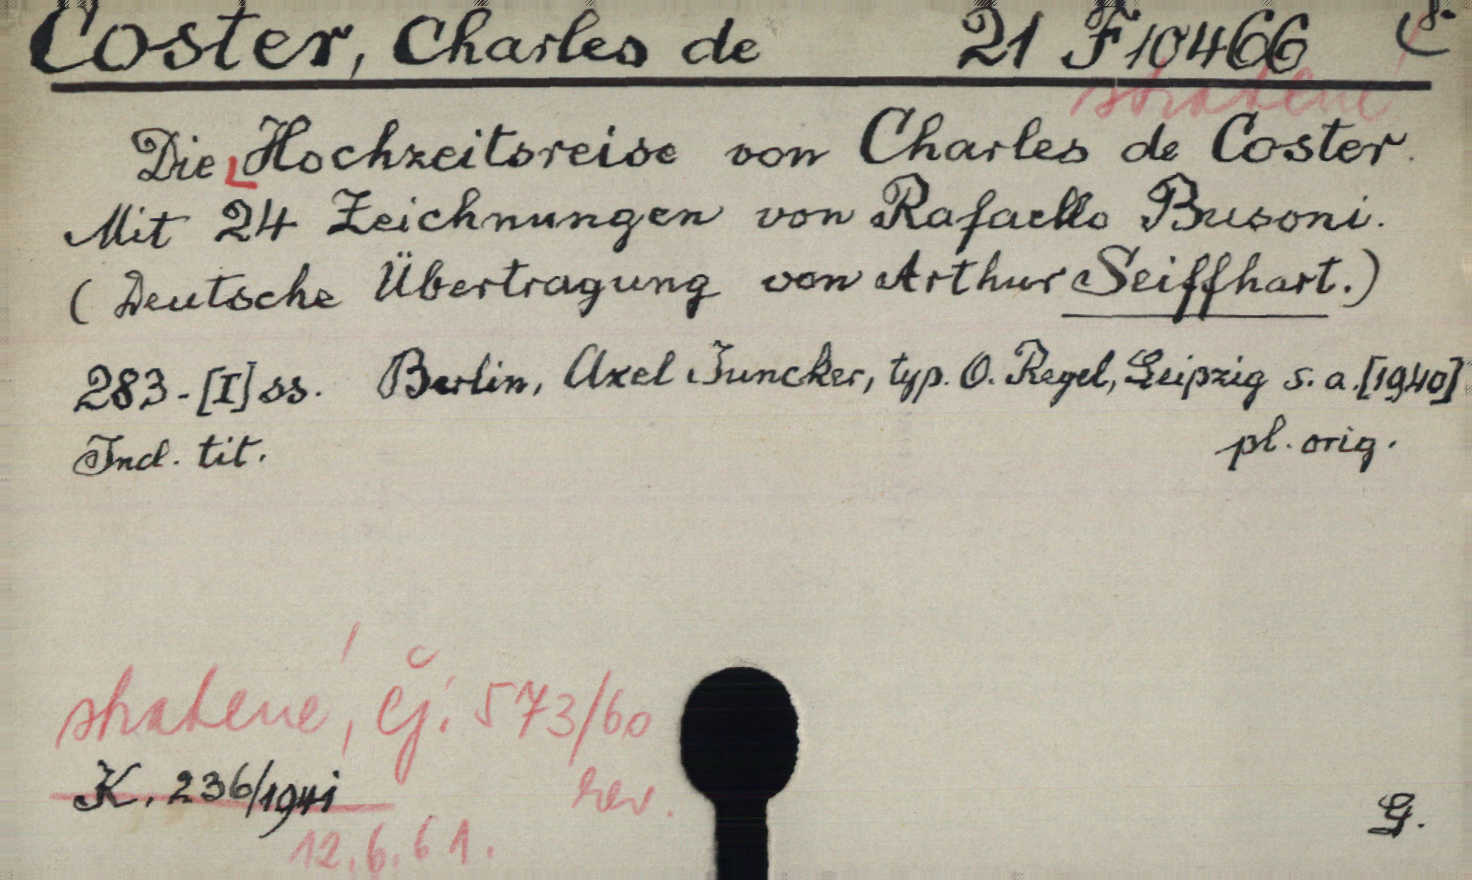 Coster, Charles de 21 F 10466 8°
stratené
Die Hochzeitsreise von Charles de Coster.
Mit 24 Zeichnungen von Rafaello Busoni.
(Deutsche Übertragung von Arthur Seiffhart.)
283-[I] ss. Berlin, Axel Juncker, typ. O. Regel, Leipzig s. a. [1940]
Incl. tit. pl. orig.
stratené, čj. 573/60
K. 236/1941 rev.
12.6.61. G.